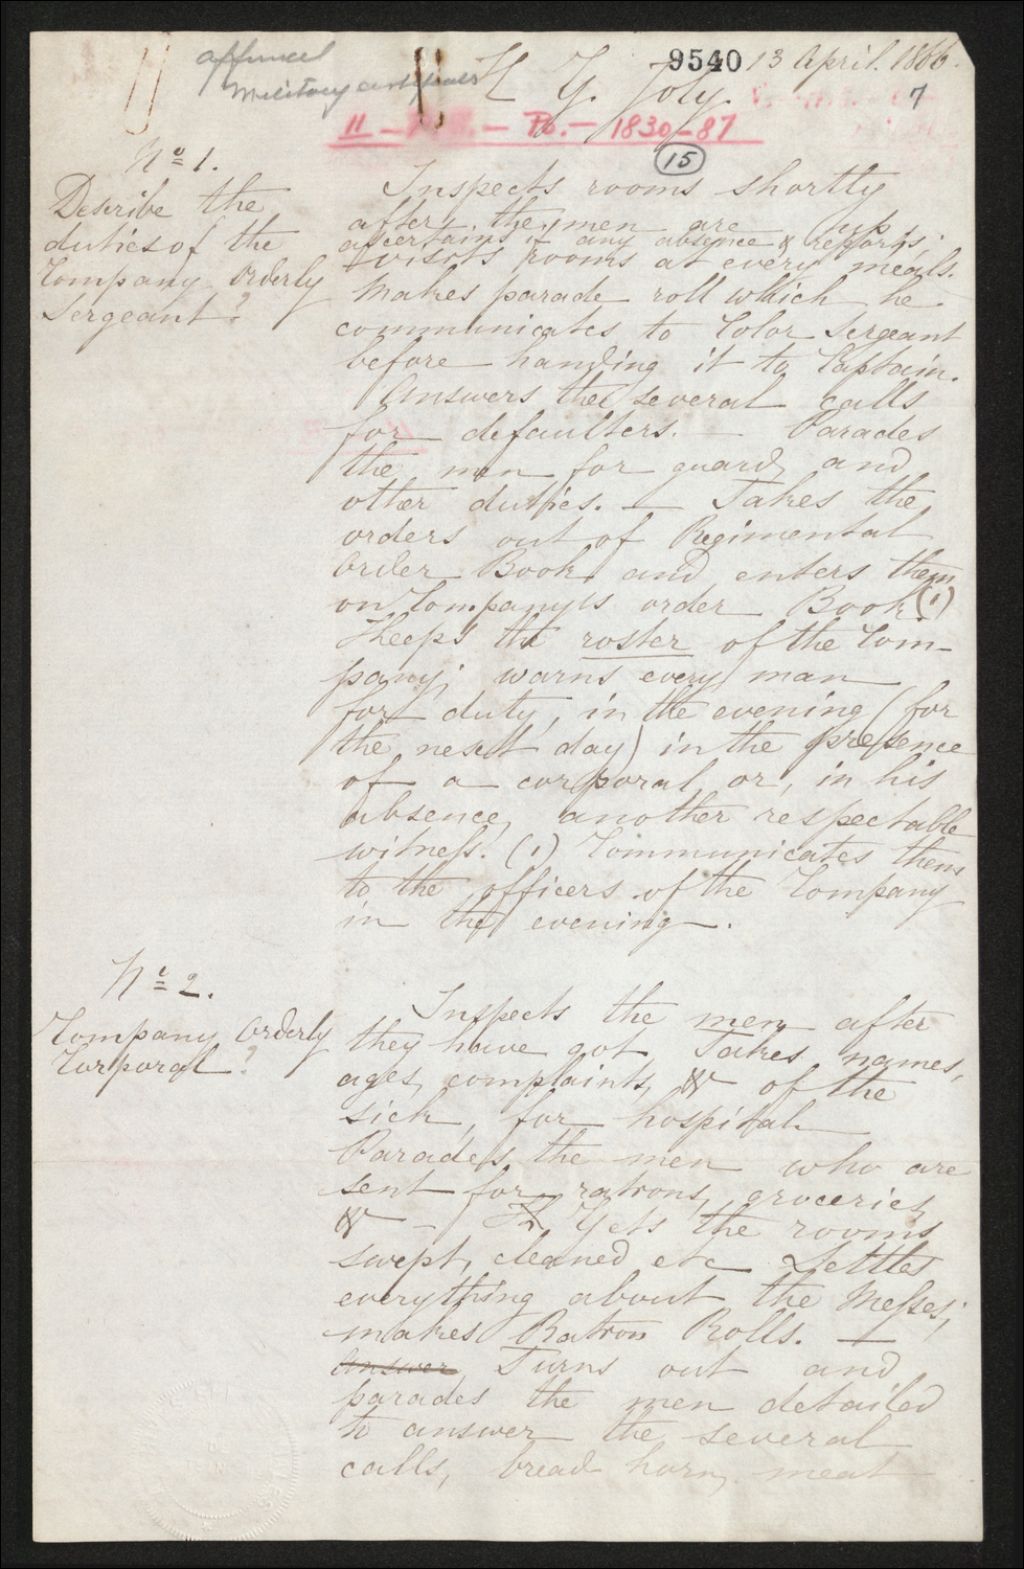 9540 13 April. 1866.
Military
H. G. Joly.
7
11 — — Po. — 1830-87
15
No 1.
Describe the
duties of the
Company Orderly
Sergeant?
Inspects rooms shortly
after the men are up;
ascertains if any absence & reports;
visits rooms at every meals.
Makes parade roll which he
communicates to Color Sergeant
before handing it to Captain.
Answers the several calls
for defaulters. — Parades
the men for guard and
other duties. — Takes the
orders out of Regimental
Order Book and enters them
on Company's order Book (1)
Keeps the roster of the Com-
pany; warns every man
for duty, in the evening (for
the next day) in the presence
of a corporal or, in his
absence, another respectable
witness. (1) Communicates them
to the officers of the Company
in the evening.
No 2.
Company Orderly
Corporal?
Inspects the men after
they have got, Takes names,
ages, complaints, & of the
sick, for hospital.
Parades the men who are
sent for rations, groceries
& — Gets the rooms
swept, cleaned etc Settles
everything about the Messes;
makes Ration Rolls. —
Answer Turns out and
parades the men detailed
to answer the several
calls, bread horn, meat